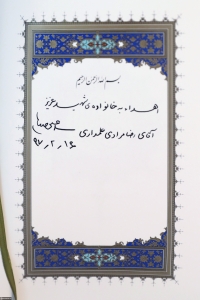 بسم الله الرحمن الرحیم
اهداء به خانواده ی شهید عزیز
آقای رضا مرادی علمداری
۹۶٫۲٫۱۶